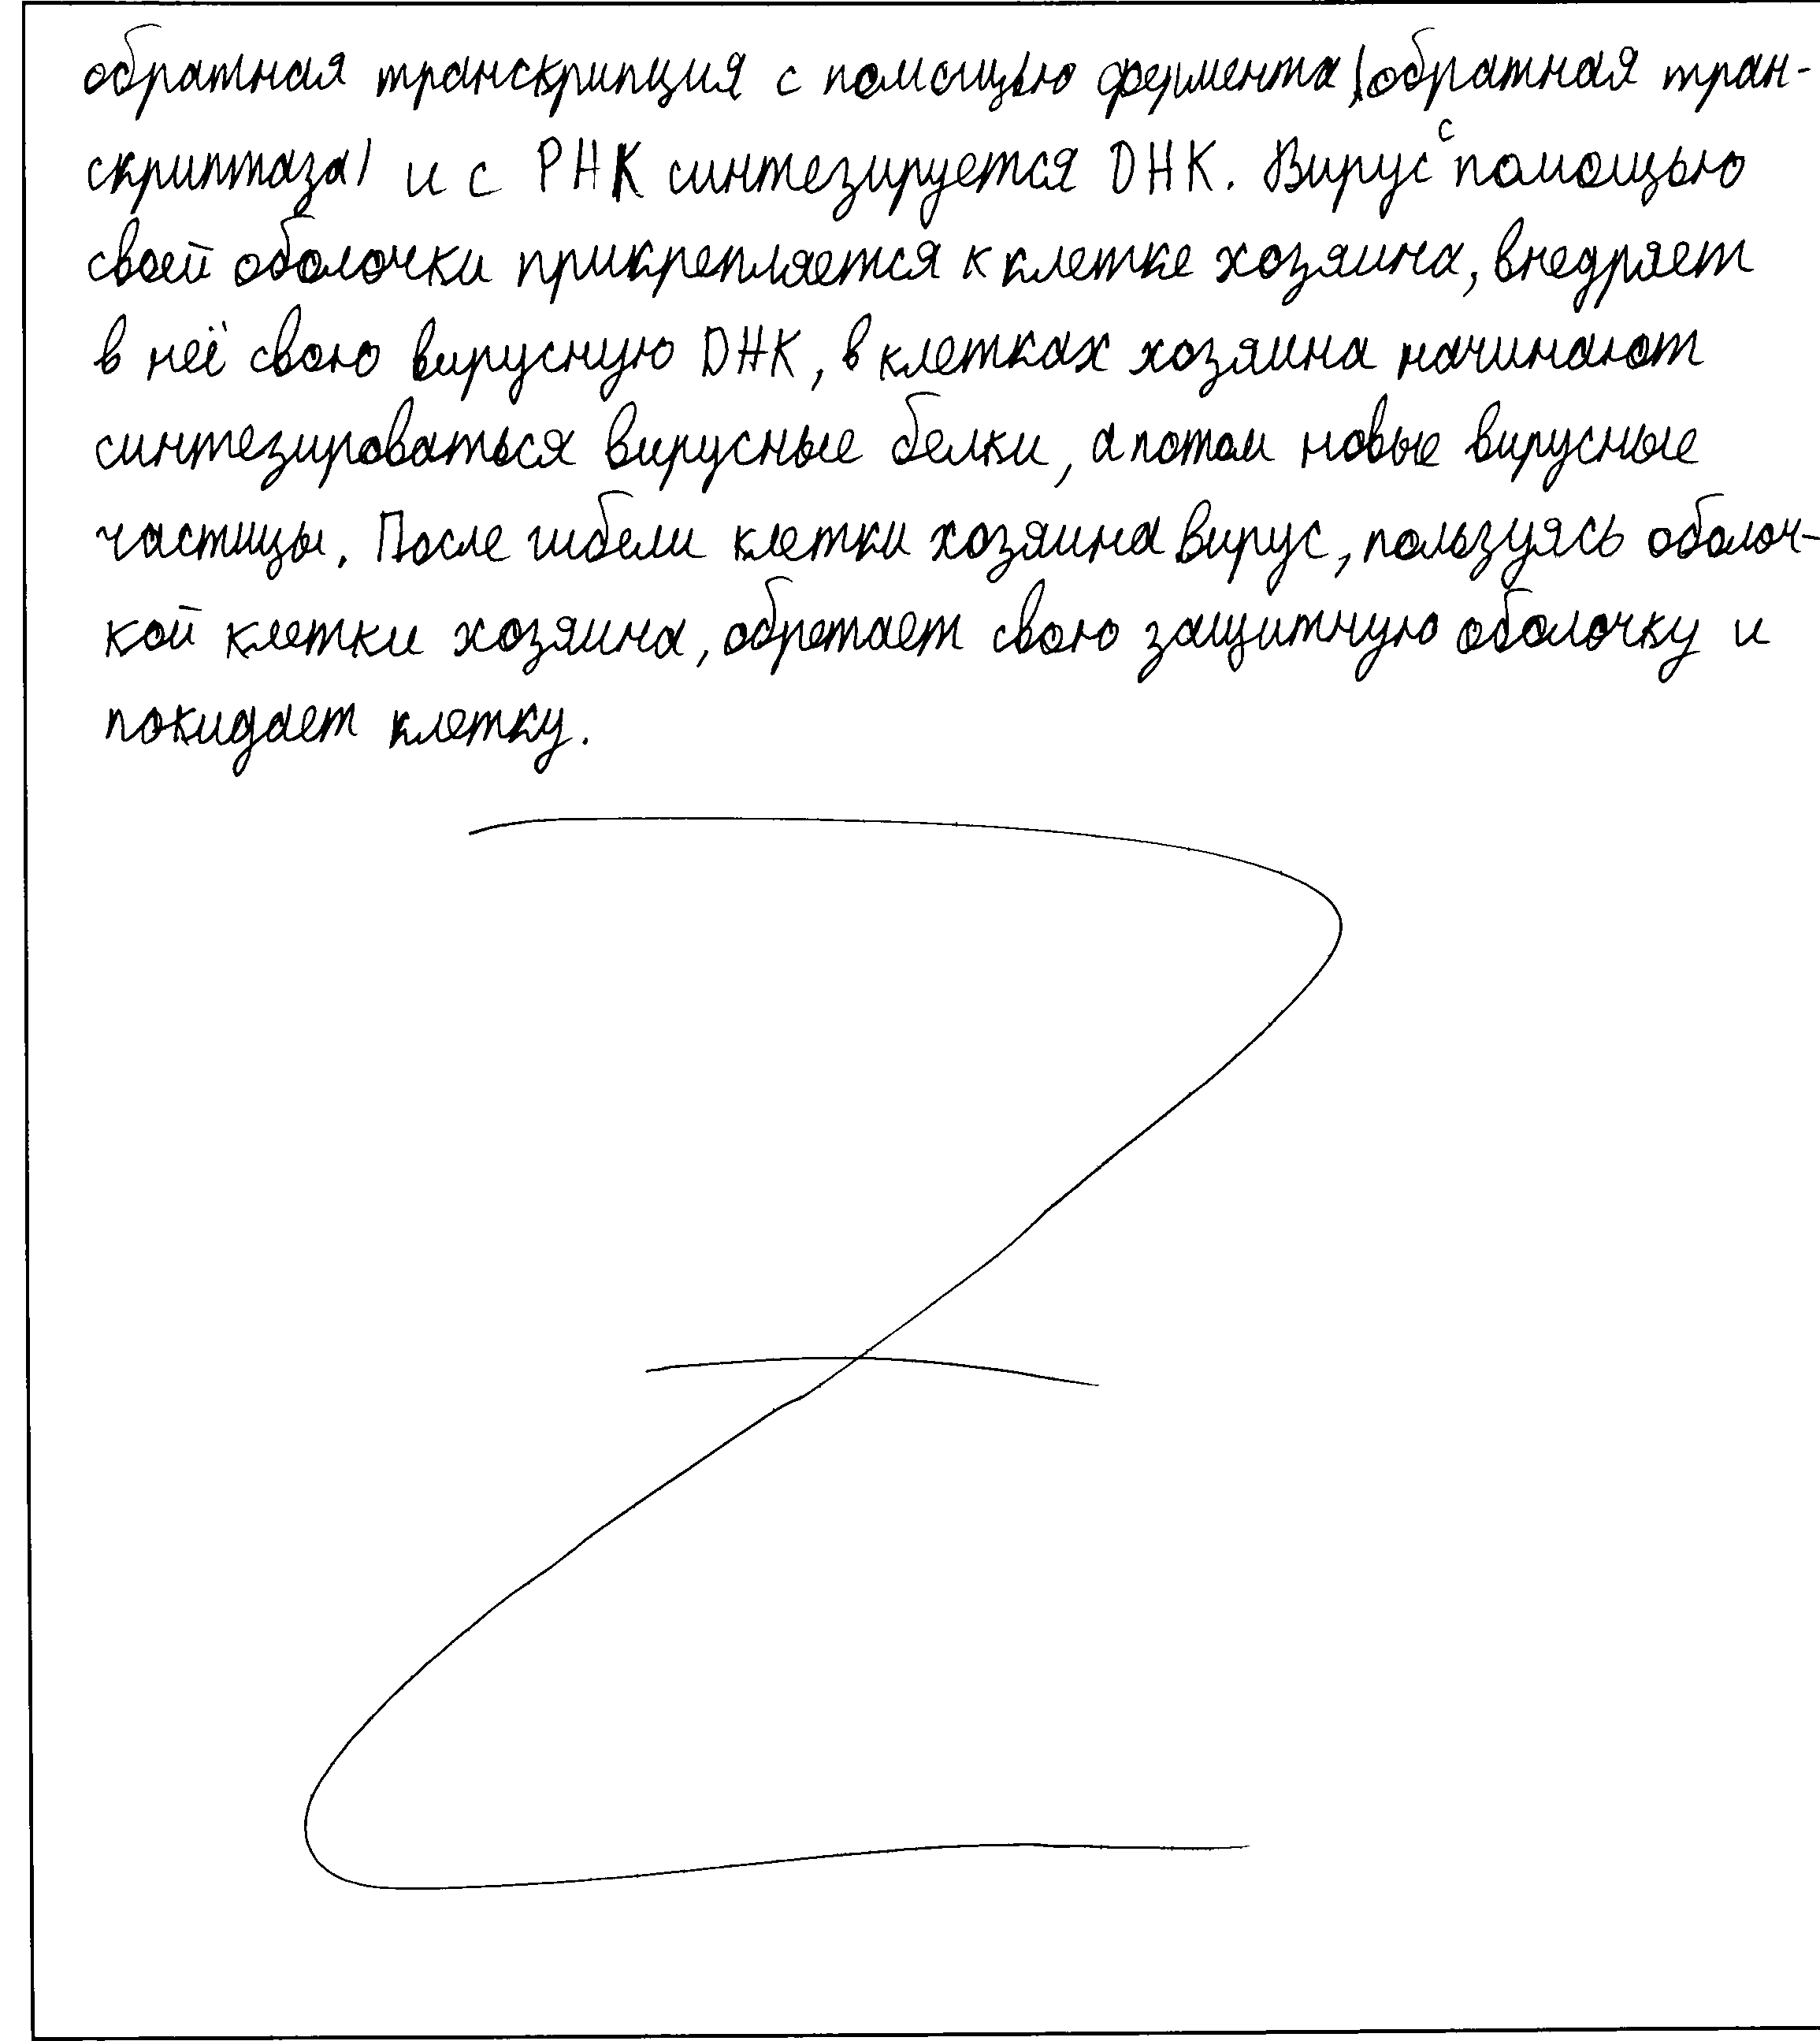 обратная транскрипция с помощью фермента (обратная тран-
скриптаза) и с РНК синтезируется ДНК. Вирус с помощью
своей оболочки прикрепляется к клетке хозяина, внедряет
в неё свою вирусную ДНК, в клетках хозяина начинают
синтезироваться вирусные белки, а потом новые вирусные
частицы. После гибели клетки хозяина вирус, пользуясь оболоч-
кой клетки хозяина, обретает свою защитную оболочку и
покидает клетку.